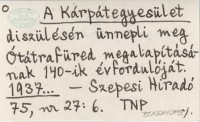 A Kárpátegyesület
diszülésén ünnepli meg
Ótátrafüred megalapításá-
nak 140-ik évfordulóját.
1937... — Szepesi Hiradó
75, nr 27: 6. TNP